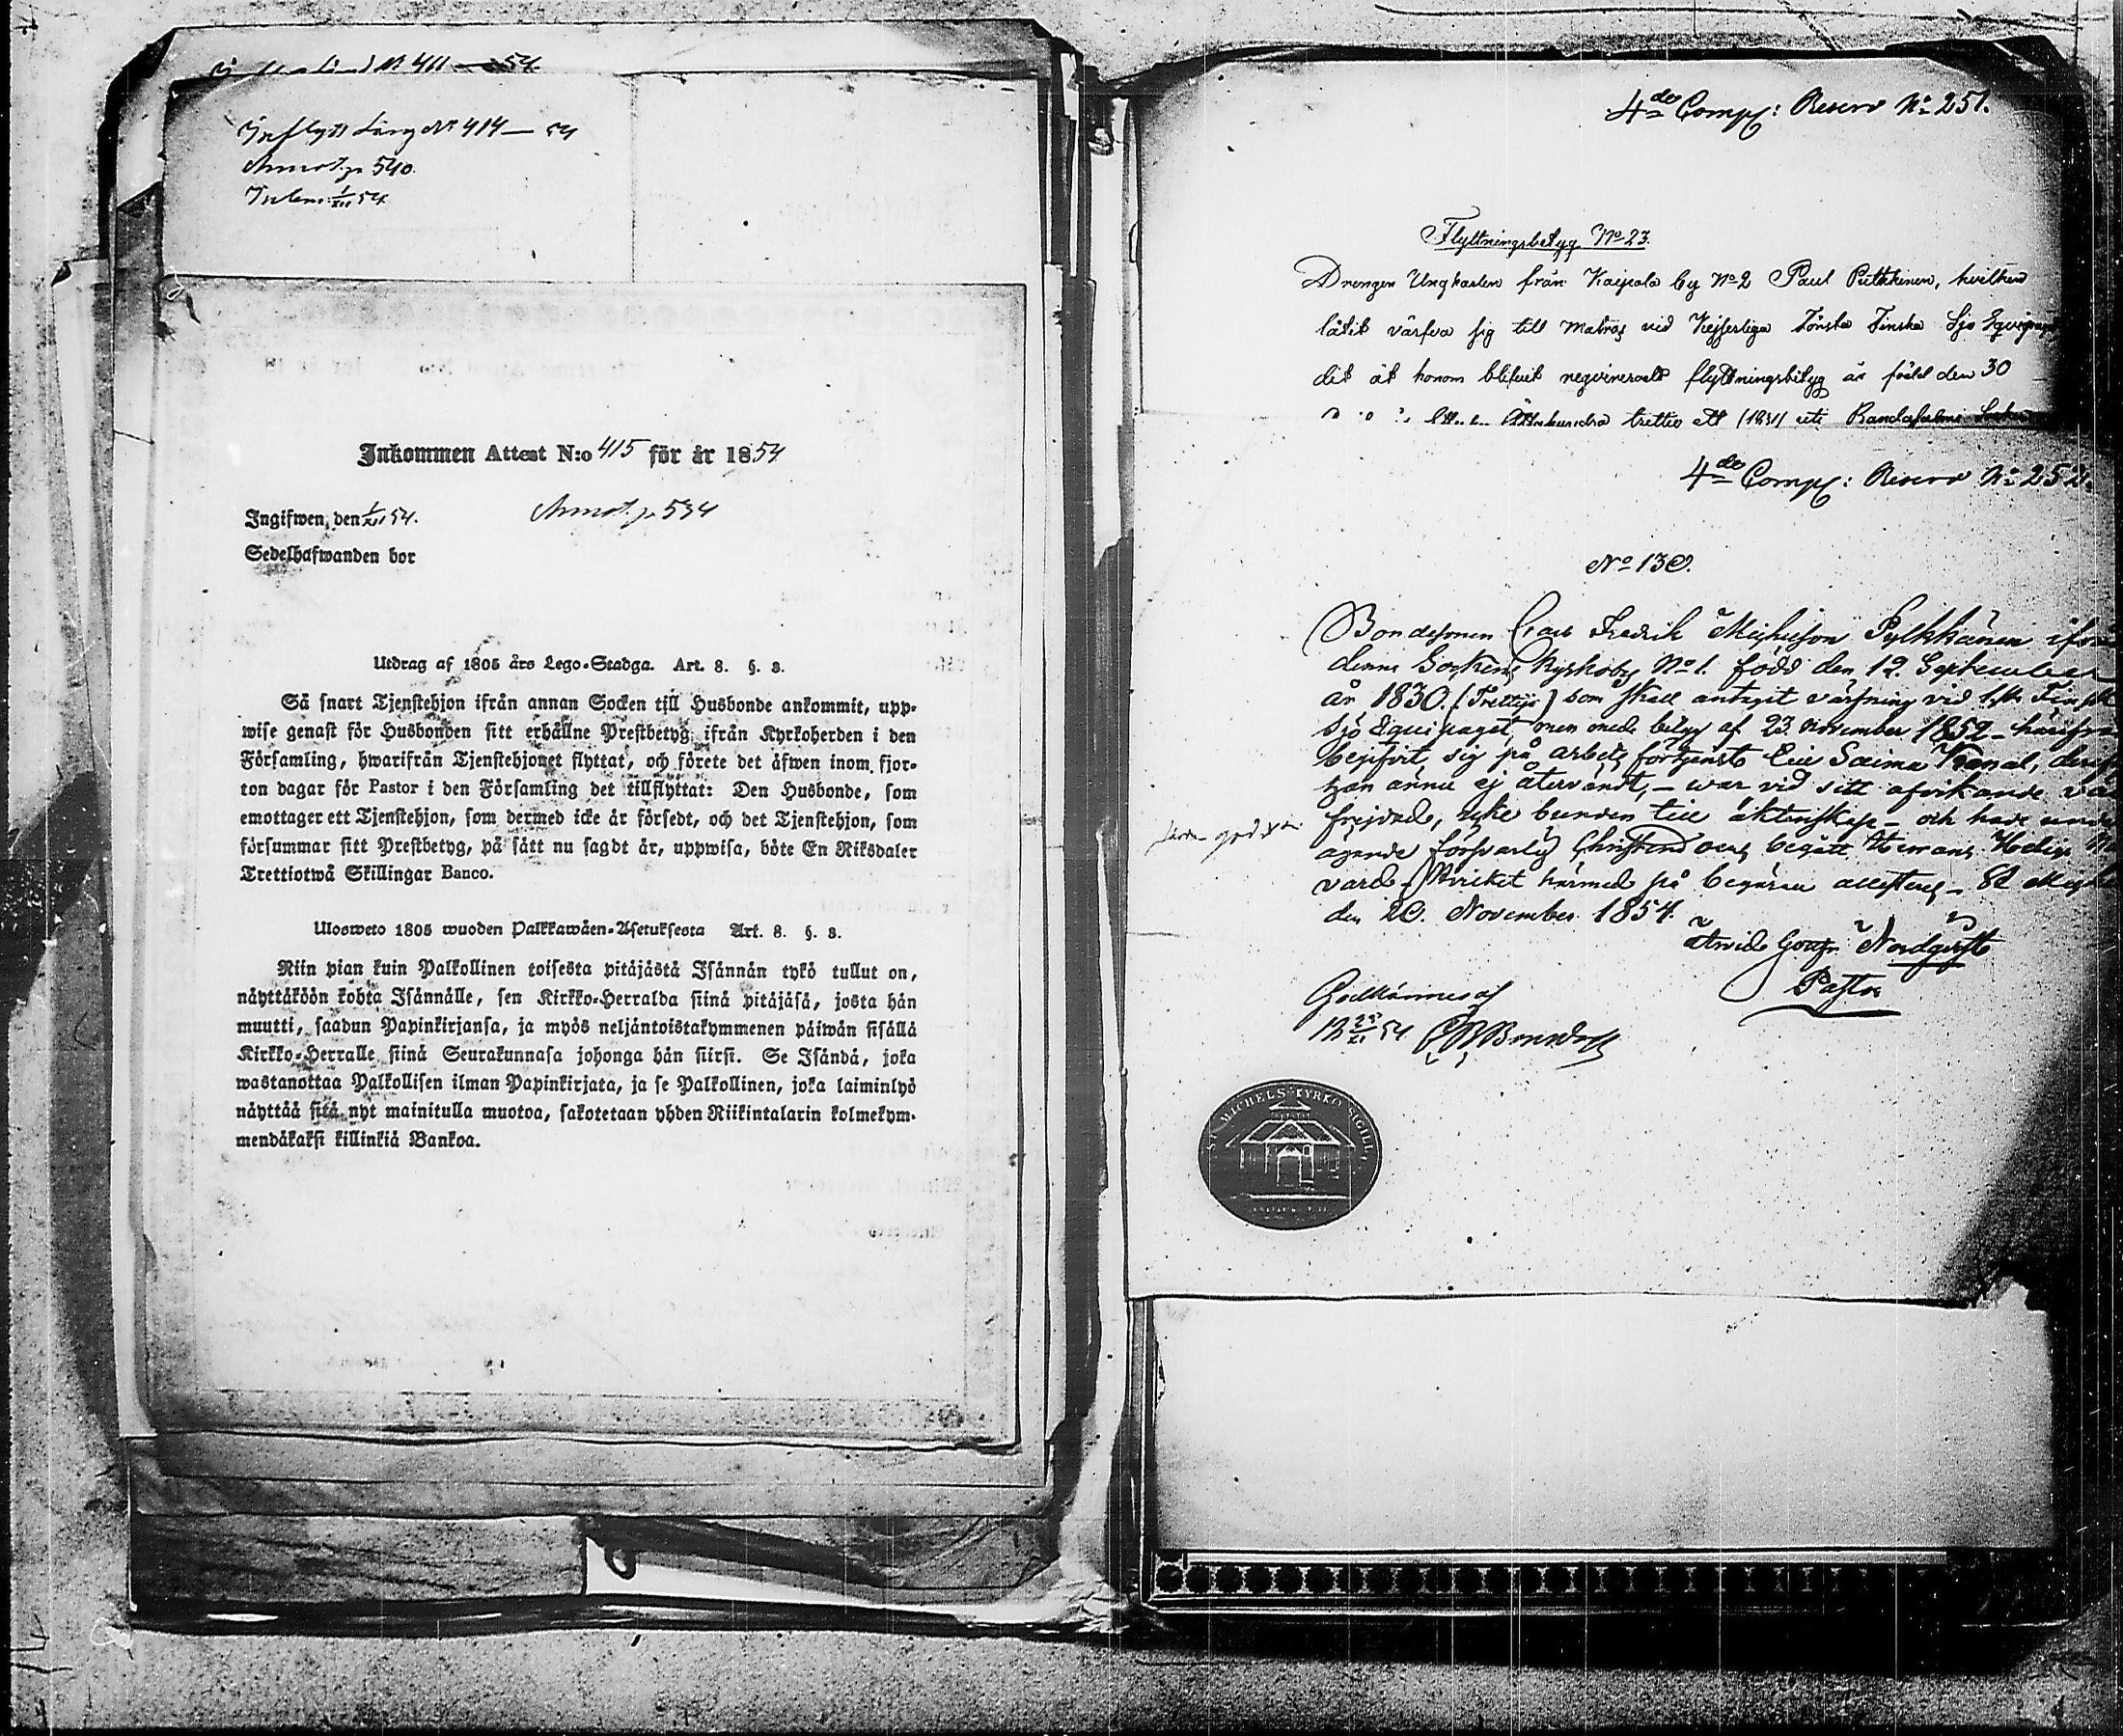 411 — 54
Inflytt Läng Nº 414 — 54
Annot. p. 540.
1/XII 54.
Inkommen Attest N:o 415 för år 1854
Ingifwen, den 1/XII 54. Annot. p. 534
Sedelhafwanden bor
Utdrag af 1805 års Lego-Stadga. Art. 8. §. 8.
Så snart Tjenstehjon ifrån annan Socken till Husbonde ankommit, upp-
wise genast för Husbonden sitt erhållne Prestbetyg ifrån Kyrkoherden i den
Församling, hwarifrån Tjenstehjonet flyttat, och förete det äfwen inom fjor-
ton dagar för Pastor i den Församling det tillflyttat: Den Husbonde, som
emottager ett Tjenstehjon, som dermed icke är försedt, och det Tjenstehjon, som
försummar sitt Prestbetyg, på sätt nu sagdt är, uppwisa, böte En Riksdaler
Trettiotwå Skillingar Banco.
Ulosweto 1805 wuoden Palkkawäen-Asetuksesta Art. 8. §. 8.
Niin pian kuin Palkollinen toisesta pitäjästä Isännän tykö tullut on,
näyttäköön kohta Isännälle, sen Kirkko-Herralda siinä pitäjäsä, josta hän
muutti, saadun Papinkirjansa, ja myös neljäntoistakymmenen päiwän sisällä
Kirkko-Herralle siinä Seurakunnasa johonga hän siirsi. Se Isändä, joka
wastanottaa Palkollisen ilman Papinkirjata, ja se Palkollinen, joka laiminlyö
näyttää sitä nyt mainitulla muotoa, sakotetaan yhden Riikintalarin kolmekym-
mendäkaksi killinkiä Bankoa.
4de Comp: Reserv Nº 251.
Flyttningsbetyg Nº 23.
Drengen Ungkarlen från Kaipala by Nº 2 Paul Putkkinen, hvilken
låtit värfva sig till Matros vid Kejserliga Första Finska Sjö Equipaget
dit åt honom blifvit flyttningsbetyg är född den 30
trettio ett (1831) uti Randasalmi Socken
4de Comp: Reserv Nº 252.
Nº 130.
Bondesonen Carl Fredrik Michelson Pylkkänen ifrån
denna Sockens Kyrkoby Nº 1. född den 12 September
år 1830. (Trettijo) som skall antagit värfning vid 1sta Finska
Sjö Equipaget, men med betyg af 23 november 1852 – härifrån
begifvit sig på arbets förtjenst Saima Kanal, derifrån
han ännu ej återvändt, – war vid sitt afvikande
frejdad, icke bunden till äktenskap – och hade
ägande försvarlig Christendom, begått Herrans Heliga
vard – Hvilket härmed på begäran attesteras – St Michel
den 20. November 1854.
Nordqvist
Pastor
Godkännes af
54
ST MICHELS KYRKO SIGILL